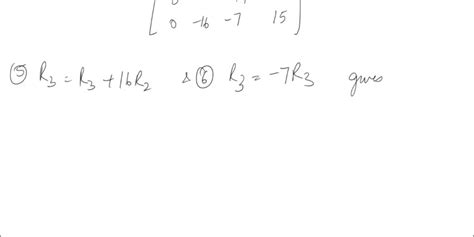 0 -16 -7 15
⑤ R₃ = R₃ + 16R₂ & ⑥ R₃ = -7R₃ gives